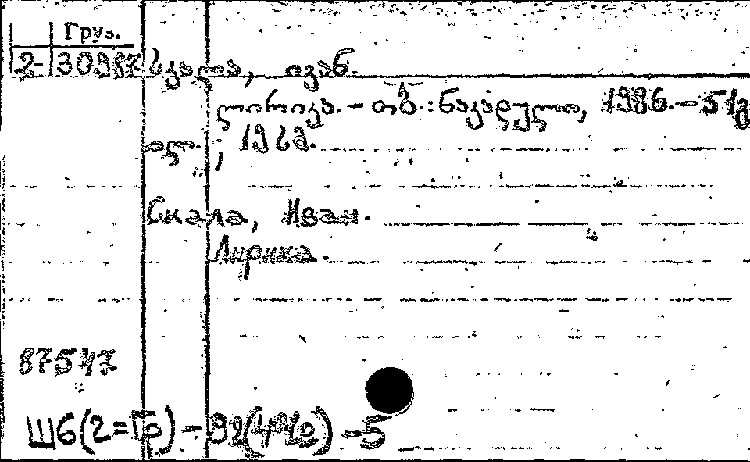 Груз.
2- 30987 სკალა, ივან.
ლირიკა. - თბ.: ნაკადული, 1986. - 51გვ
ილ. ; 19 სმ.
Скала, Иван.
Лирика.
87547
Ш6(2=Гр) - 92(4Че) - 5